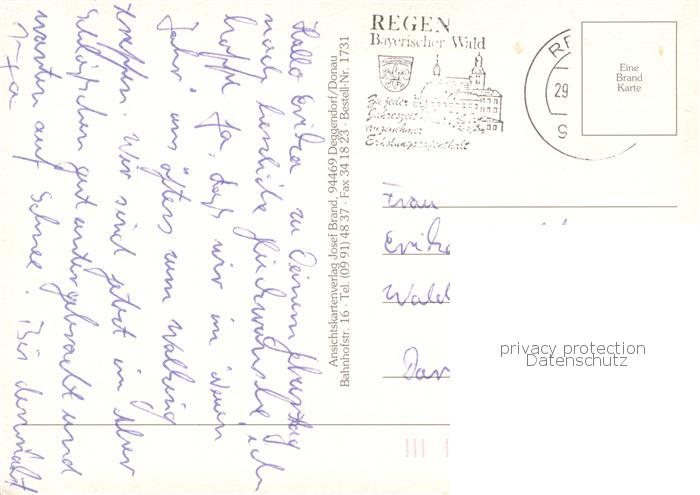 Hallo Erika zu Deinem Geburtstag
noch herzliche Glückwünsche, ich
hoffe ja, daß wir im Neuen
Jahr uns öfters zum Walking
treffen. Wir sind jetzt im
Schlößchen gut untergebracht und
warten auf Schnee. Bis demnächst
Ansichtskartenverlag Josef Brand, 94469 Deggendorf/Donau
Bahnhofstr. 16 · Tel. (09 91) 48 37 · Fax 34 18 23 · Bestell-Nr. 1731
REGEN
Bayerischer Wald
Zu jeder
Jahreszeit
angenehmer
Erholungsaufenthalt
29
Eine
Brand
Karte
Frau
Erika
Wald
Dar
privacy protection
Datenschutz